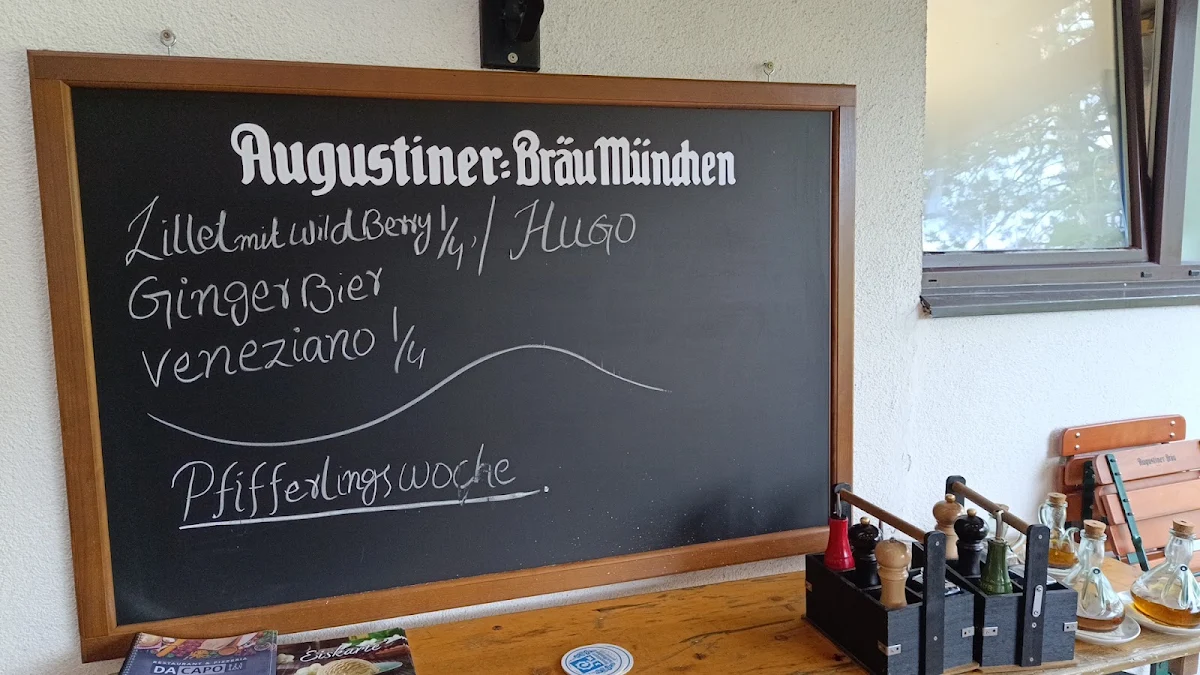 Augustiner-Bräu München
Lillet mit wild Berry 1/4, / HUGO
Ginger Bier
Veneziano 1/4
Pfifferlingswoche
RESTAURANT & PIZZERIA
DA CAPO
Eiskarte
Augustiner Bräu